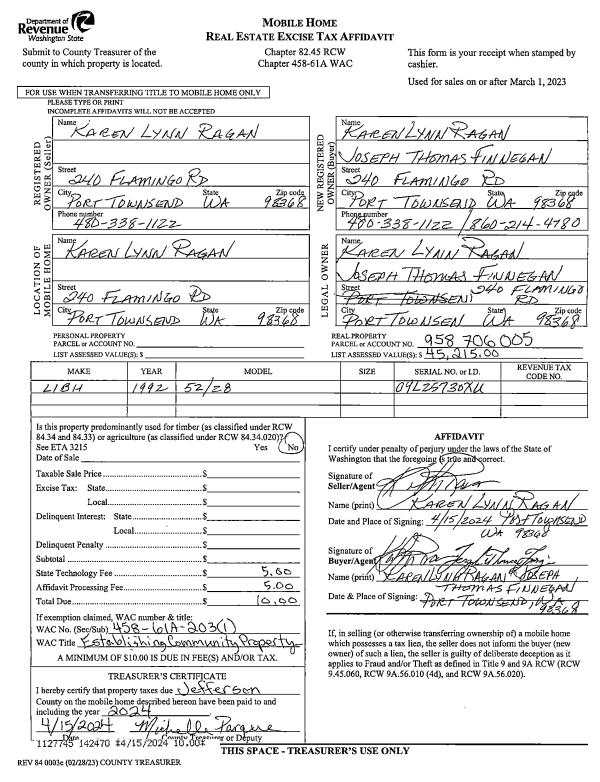 Department of
Revenue
Washington State
Submit to County Treasurer of the
county in which property is located.
MOBILE HOME
REAL ESTATE EXCISE TAX AFFIDAVIT
Chapter 82.45 RCW
Chapter 458-61A WAC
This form is your receipt when stamped by
cashier.
Used for sales on or after March 1, 2023
FOR USE WHEN TRANSFERRING TITLE TO MOBILE HOME ONLY
PLEASE TYPE OR PRINT
INCOMPLETE AFFIDAVITS WILL NOT BE ACCEPTED
REGISTERED OWNER (Seller)
Name
KAREN LYNN RAGAN
Street
240 FLAMINGO RD
City State Zip code
PORT TOWNSEND WA 98368
Phone number
480-338-1122
NEW REGISTERED OWNER (Buyer)
Name
KAREN LYNN RAGAN
JOSEPH THOMAS FINNEGAN
Street
240 FLAMINGO RD
City State Zip code
PORT TOWNSEND WA 98368
Phone number
480-338-1122 / 860-214-4780
LOCATION OF MOBILE HOME
Name
KAREN LYNN RAGAN
Street
240 FLAMINGO RD
City State Zip code
PORT TOWNSEND WA 98368
LEGAL OWNER
Name
KAREN LYNN RAGAN
JOSEPH THOMAS FINNEGAN
Street
PORT TOWNSEND 240 FLAMINGO
RD
City State Zip code
PORT TOWNSEN WA 98368
PERSONAL PROPERTY
PARCEL or ACCOUNT NO.
LIST ASSESSED VALUE(S): $
REAL PROPERTY
PARCEL or ACCOUNT NO. 958 706 005
LIST ASSESSED VALUE(S): $ 45,215.00
MAKE YEAR MODEL SIZE SERIAL NO. or I.D. REVENUE TAX CODE NO.
LIBH 1992 52/28 09L25730XU
Is this property predominantly used for timber (as classified under RCW
84.34 and 84.33) or agriculture (as classified under RCW 84.34.020)?
See ETA 3215 Yes No
Date of Sale
Taxable Sale Price $
Excise Tax: State $
Local $
Delinquent Interest: State $
Local $
Delinquent Penalty $
Subtotal $
State Technology Fee $ 5.00
Affidavit Processing Fee $ 5.00
Total Due $ 10.00
If exemption claimed, WAC number & title:
WAC No. (Sec/Sub) 458-61A-203(1)
WAC Title Establishing Community Property
A MINIMUM OF $10.00 IS DUE IN FEE(S) AND/OR TAX.
TREASURER'S CERTIFICATE
I hereby certify that property taxes due Jefferson
County on the mobile home described hereon have been paid to and
including the year 2024
4/15/2024
County Treasurer or Deputy
1127745 142470 #4/15/2024 10.00#
AFFIDAVIT
I certify under penalty of perjury under the laws of the State of
Washington that the foregoing is true and correct.
Signature of
Seller/Agent
Name (print) KAREN LYNN RAGAN
Date and Place of Signing: 4/15/2024 PORT TOWNSEND
WA 98368
Signature of
Buyer/Agent
Name (print) KAREN LYNN RAGAN & JOSEPH
THOMAS FINNEGAN
Date & Place of Signing: PORT TOWNSEND, WA
98368
If, in selling (or otherwise transferring ownership of) a mobile home
which possesses a tax lien, the seller does not inform the buyer (new
owner) of such a lien, the seller is guilty of deliberate deception as it
applies to Fraud and/or Theft as defined in Title 9 and 9A RCW (RCW
9.45.060, RCW 9A.56.010 (4d), and RCW 9A.56.020).
THIS SPACE - TREASURER'S USE ONLY
REV 84 0003e (02/28/23) COUNTY TREASURER